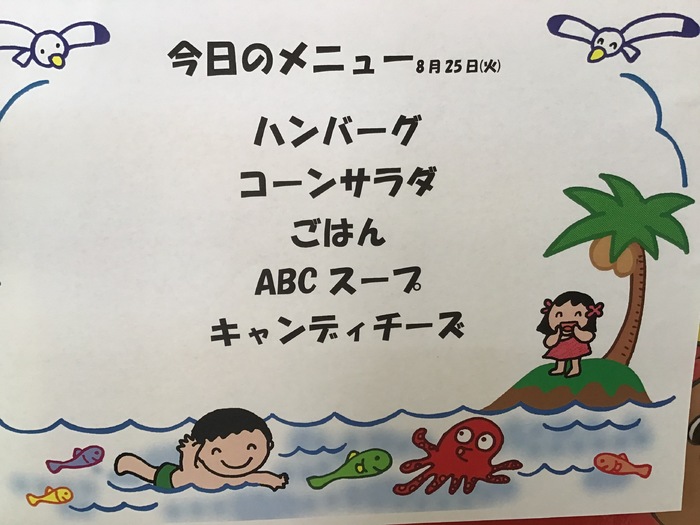 今日のメニュー 8月25日(火)
ハンバーグ
コーンサラダ
ごはん
ABCスープ
キャンディチーズ